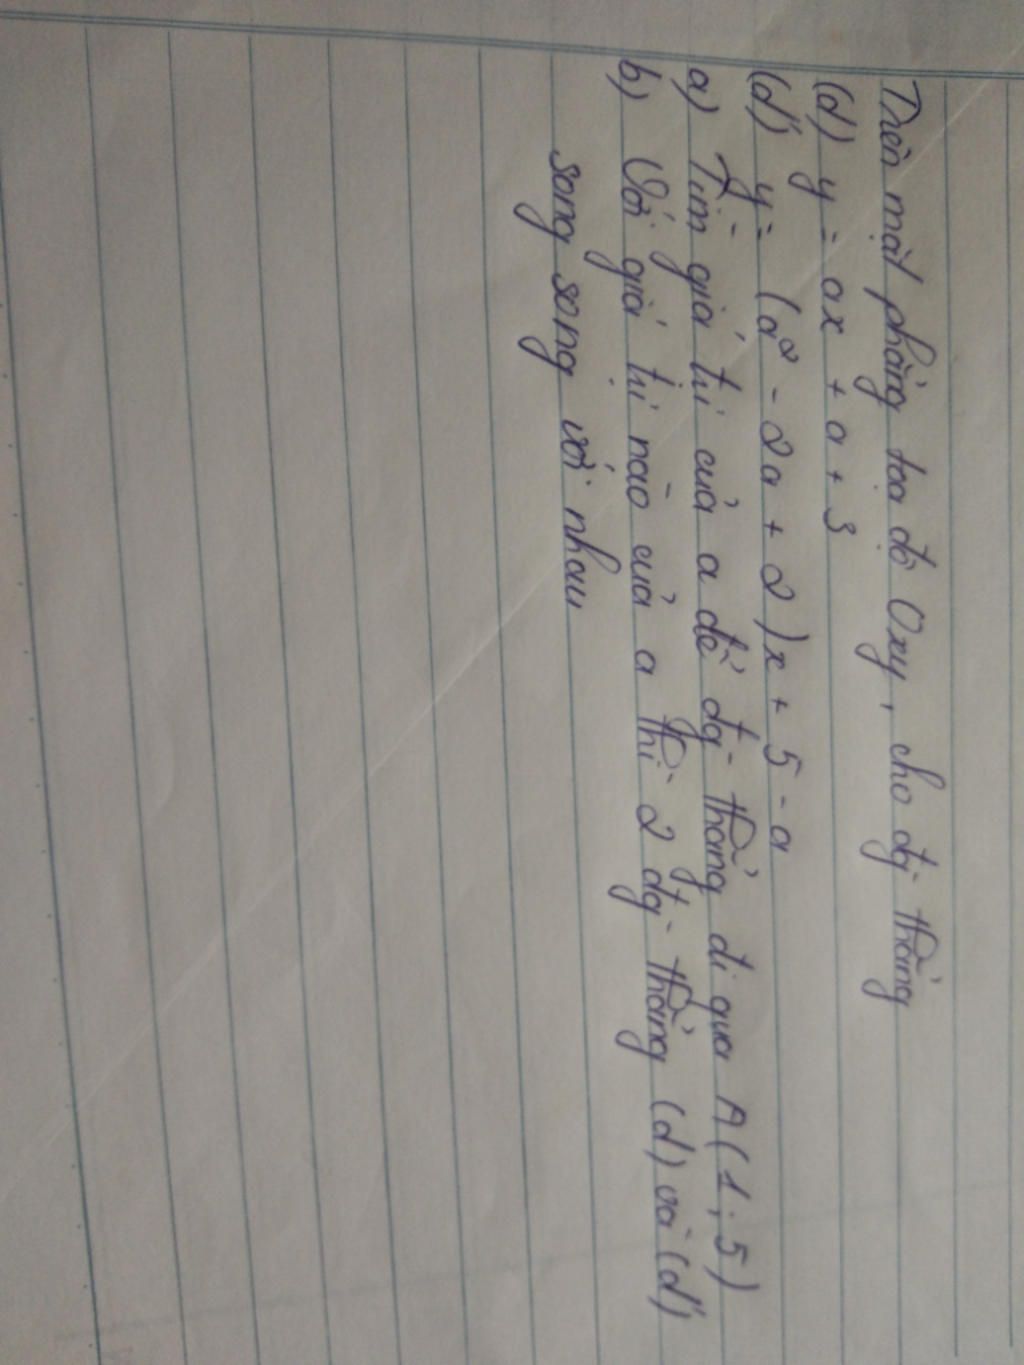 Trên mặt phẳng tọa độ Oxy, cho đg` thẳng
(d) y = ax + a + 3
(d') y = (a² - 2a + 2)x + 5 - a
a) Tìm giá trị của a để đg` thẳng đi qua A(1; 5)
b) Với giá trị nào của a thì 2 đg` thẳng (d) và (d')
song song với nhau